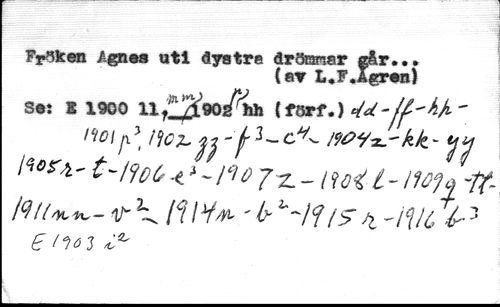 Fröken Agnes uti dystra drömmar går...
(av L.F.Ågren)
Se: E 1900 11, mm, 1902 p, hh (förf.) dd-ff-hh-
1901 p³, 1902 zz-f³-c⁴-1904 z-kk-yy
1905 r-t-1906 e³-1907 z-1908 l-1909 q-tt-
1911 nn-v²-1914 n-b²-1915 r-1916 b³
E 1903 i²